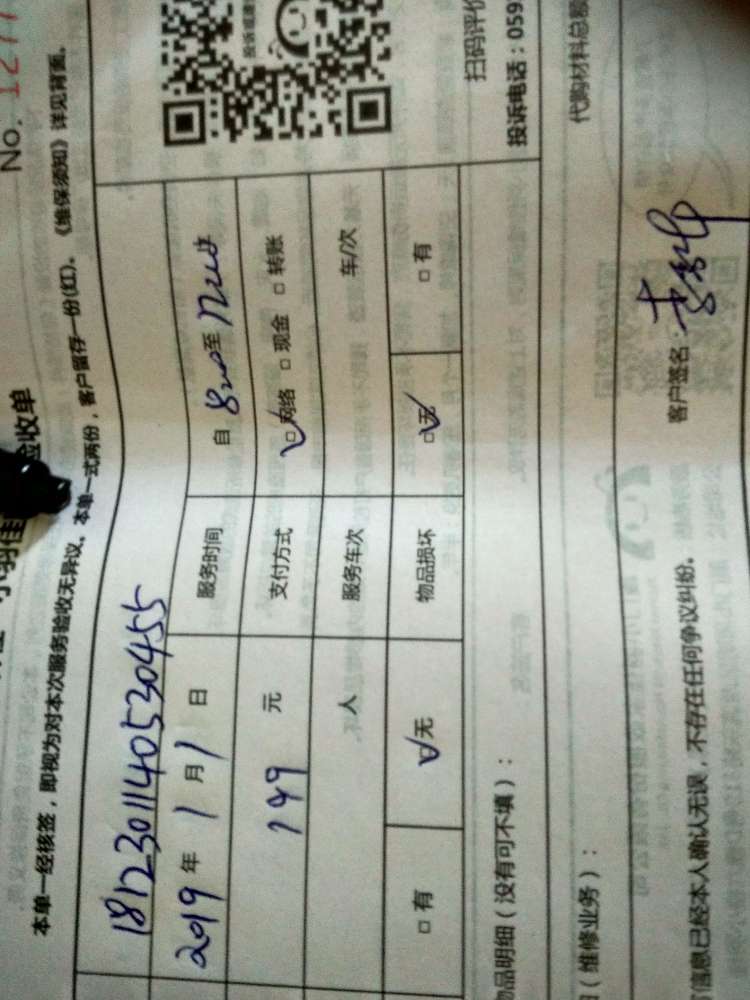 No. 1277
验收单
本单一经核签，即视为对本次服务验收无异议。本单一式两份，客户留存一份(红)。《维保须知》详见背面。
181230114053045５
2019 年 1 月 1 日 服务时间 自 8:00 至 12:00
149 元 支付方式 ☑网络 □现金 □转账
人 服务车次 车/次
□有 ☑无 物品损坏 ☑无 □有
扫码评价
投诉电话：059
品明细（没有可不填）：
代购材料总额
（维修业务）：
信息已经本人确认无误，不存在任何争议纠纷。 客户签名